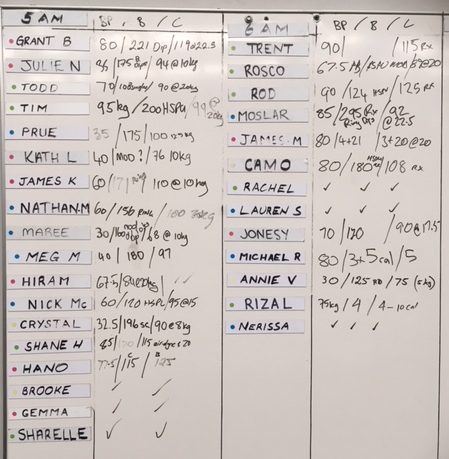 5 AM BP / B / C
GRANT B 80 / 221 Dip / 119 @ 22.5
JULIE N 85 / 175 / 94 @ 10kg
TODD 70 / 90 @ 20kg
TIM 95kg / 200 HSPU / 99 @ 20kg
PRUE 35 / 175 / 100
KATH L 40 / MOD ? / 76 10kg
JAMES K 60 / 171 / 110 @ 10kg
NATHAN.M 60 / 156 / 180
MAREE 30 / 100 / 68 @ 10kg
MEG M 40 / 180 / 97
HIRAM 67.5 / ✓ ✓
NICK Mc 60 / 120 HSPU / 95 @ 15
CRYSTAL 32.5 / 196 / 90 @ 8kg
SHANE H 85 / 170 / 115
HANO 77.5 / 115 / 125
BROOKE ✓ ✓
GEMMA ✓ ✓
SHARELLE ✓ ✓
6 AM BP / B / C
TRENT 90 / / 115 Rx
ROSCO 67.5
ROD 90 / 124 HSM / 125 Rx
MOSLAR 85 / 295 Rx / 92 @ 22.5
JAMES.M 80 / 4+21 / 3+20 @ 20
CAMO 80 / 180 / 108 Rx
RACHEL ✓ ✓ ✓
LAUREN S ✓ ✓ ✓
JONESY 70 / 170 / 90 @ 17.5
MICHAEL R 80 / 3 + 5 cal / 5
ANNIE V 30 / 125 / 75
RIZAL 75kg / 4 / 4 - 10 cal
NERISSA ✓ ✓ ✓